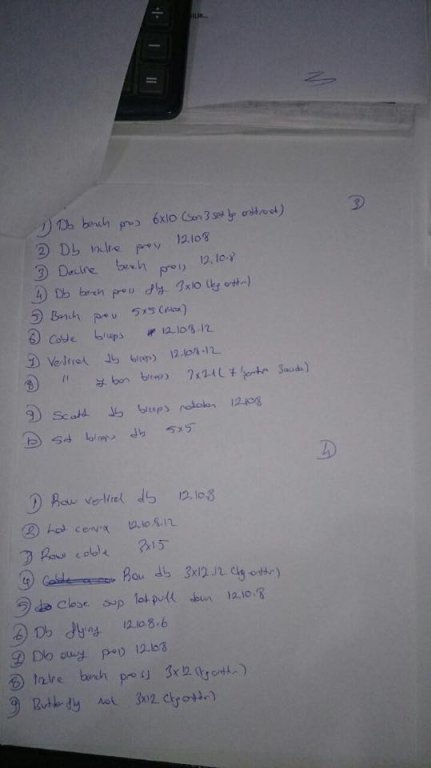 ③
① Db bench pres 6x10 (son 3 set kg arttırarak)
② Db incline press 12.10.8
③ Decline bench press 12.10.8
④ Db bench press fly 3x10 (kg arttır)
⑤ Bench press 5x5 (max)
⑥ Cable biceps 12.10.8.12
⑦ Vertical db biceps 12.10.8.12
⑧ " z barı biceps 3x21 (7
⑨ Scott db biceps 12.10.8
⑩ biceps db 5x5
④
① Row vertical db 12.10.8
② Lat 12.10.8.12
③ Row cable 3x15
④ Row db 3x12.12 (kg arttır)
⑤ Close sup lat pull down 12.10.8
⑥ Db flying 12.10.8.6
⑦ Db press 12.10.8
⑧ Incline bench press 3x12 (kg arttır)
⑨ Butterfly 3x12 (kg arttır)